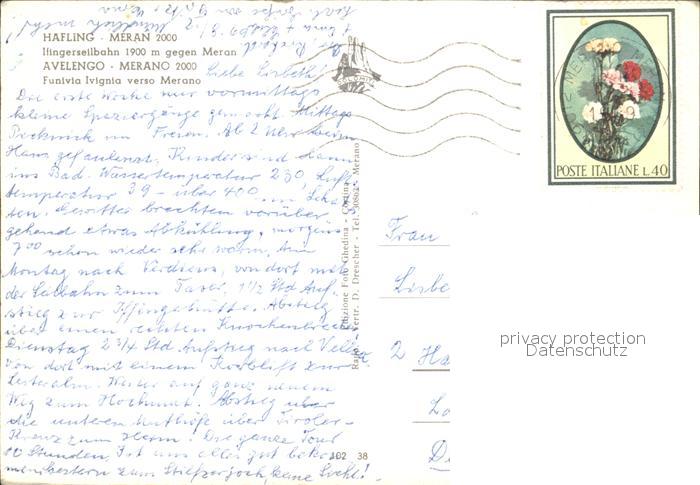 HAFLING - MERAN 2000
Ifingerseilbahn 1900 m gegen Meran
AVELENGO - MERANO 2000
Funivia Ivignia verso Merano
Liebe Lisbeth!
Die erste Woche nur vormittags
kleine Spaziergänge gemacht. Mittags
Picknick im Freien. Ab 2 Uhr beim
Haus gefaulenzt, Kinder sind dann
ins Bad. Wassertemperatur 23°, Luft-
temperatur 39 - über 40° im Schat-
ten. Gewitter brachten vorüber-
gehend etwas Abkühlung, morgens
7°° schon wieder sehr warm. Am
Montag nach Verdins, von dort mit
der Seilbahn zum Taser, 1 1/2 Std Auf-
stieg zur Iffingerhütte. Abstieg
über einen rechten Knochenbrecher
Dienstag 2 3/4 Std Aufstieg nach
von dort mit einem Korblift zur
Leiteralm. Weiter auf ganz neuem
Weg zum Hochmut. Abstieg über
die unteren Muthöfe über Tiroler-
Kreuz zum Heim! Die ganze Tour
10 Stunden. Ist uns alles gut bekommen
gestern zum Stilfserjoch, keine Sicht!
Edizione Foto Ghedina - Cortina
Vertr. D. Drescher - Tel. 30803 - Merano
DOLOMITI
102 38
POSTE ITALIANE L.40
Frau
Lisbe
2 Ha
privacy protection
Datenschutz